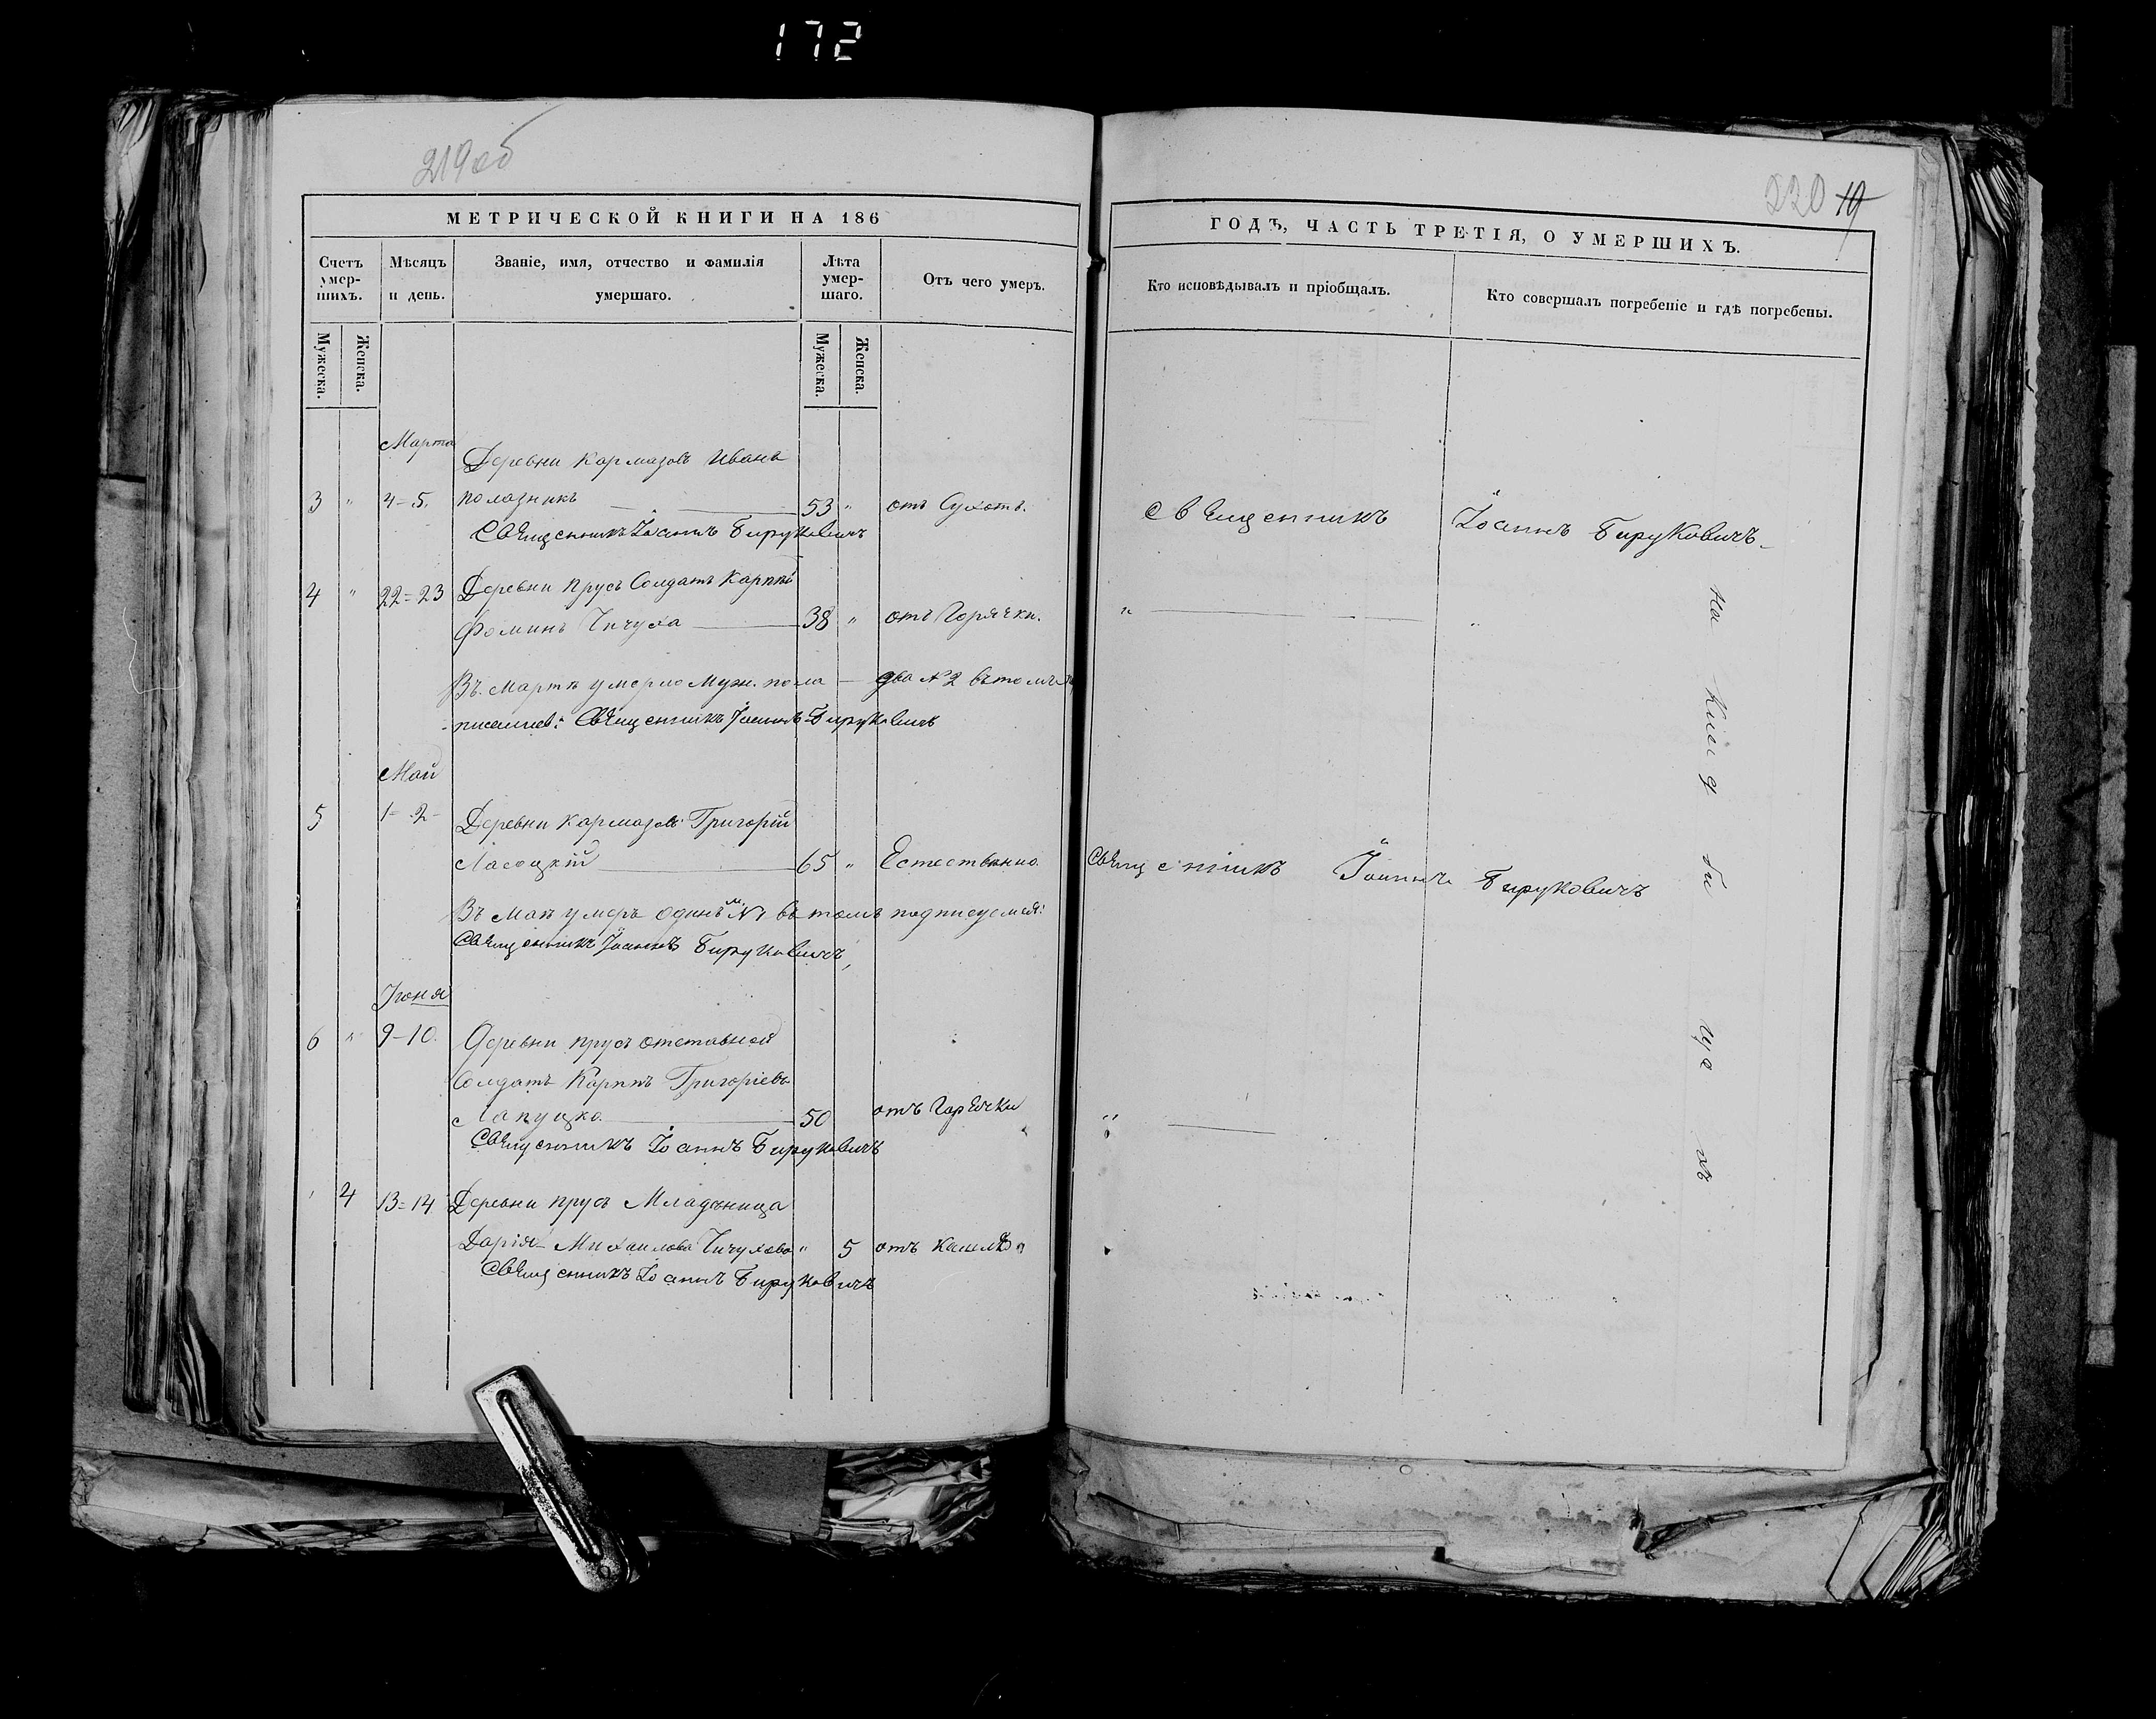 172
219 об
220 19
МЕТРИЧЕСКОЙ КНИГИ НА 186
ГОДЪ, ЧАСТЬ ТРЕТІЯ, О УМЕРШИХЪ.
Счетъ умер-шихъ.
Мѣсяцъ и день.
Званіе, имя, отчество и фамилія умершаго.
Лѣта умер-шаго.
Отъ чего умеръ.
Кто исповѣдывалъ и пріобщалъ.
Кто совершалъ погребеніе и гдѣ погребены.
Мужеска.
Женска.
Мужеска.
Женска.
Марта
Деревни Кармазовъ Иванъ
3 " 4=5. полазникъ 53 " отъ Сухотъ. Священникъ Іоаннъ Бируковичъ
Священникъ Іоаннъ Бируковичъ
4 " 22=23 Деревни Прусъ Солдатъ Карппъ
Фоминъ Чичуха 38 " отъ Горячки. "
Въ Мартѣ умерло Муж. пола — два № 2 въ томъ
писался: Священникъ Іоаннъ Бируковичъ
Май
5 1=2 Деревни Кармазовъ Григорій
Ласоцкій 65 " Естественно. Священникъ Іоаннъ Бируковичъ
Въ Маѣ умеръ одинъ № 1 въ томъ подписуемся:
Священникъ Іоаннъ Бируковичъ,
Іюня
6 " 9-10. Деревни прусъ отставной
Солдатъ Карппъ Григоріевъ
Лапуцко 50 отъ Горячки "
Священникъ Іоаннъ Бируковичъ
4 13=14 Деревни прусъ Младѣница
Дарія Михаилова Чичухова " 5 отъ Кашлю
Священникъ Іоаннъ Бируковичъ
На Кладбищахъ